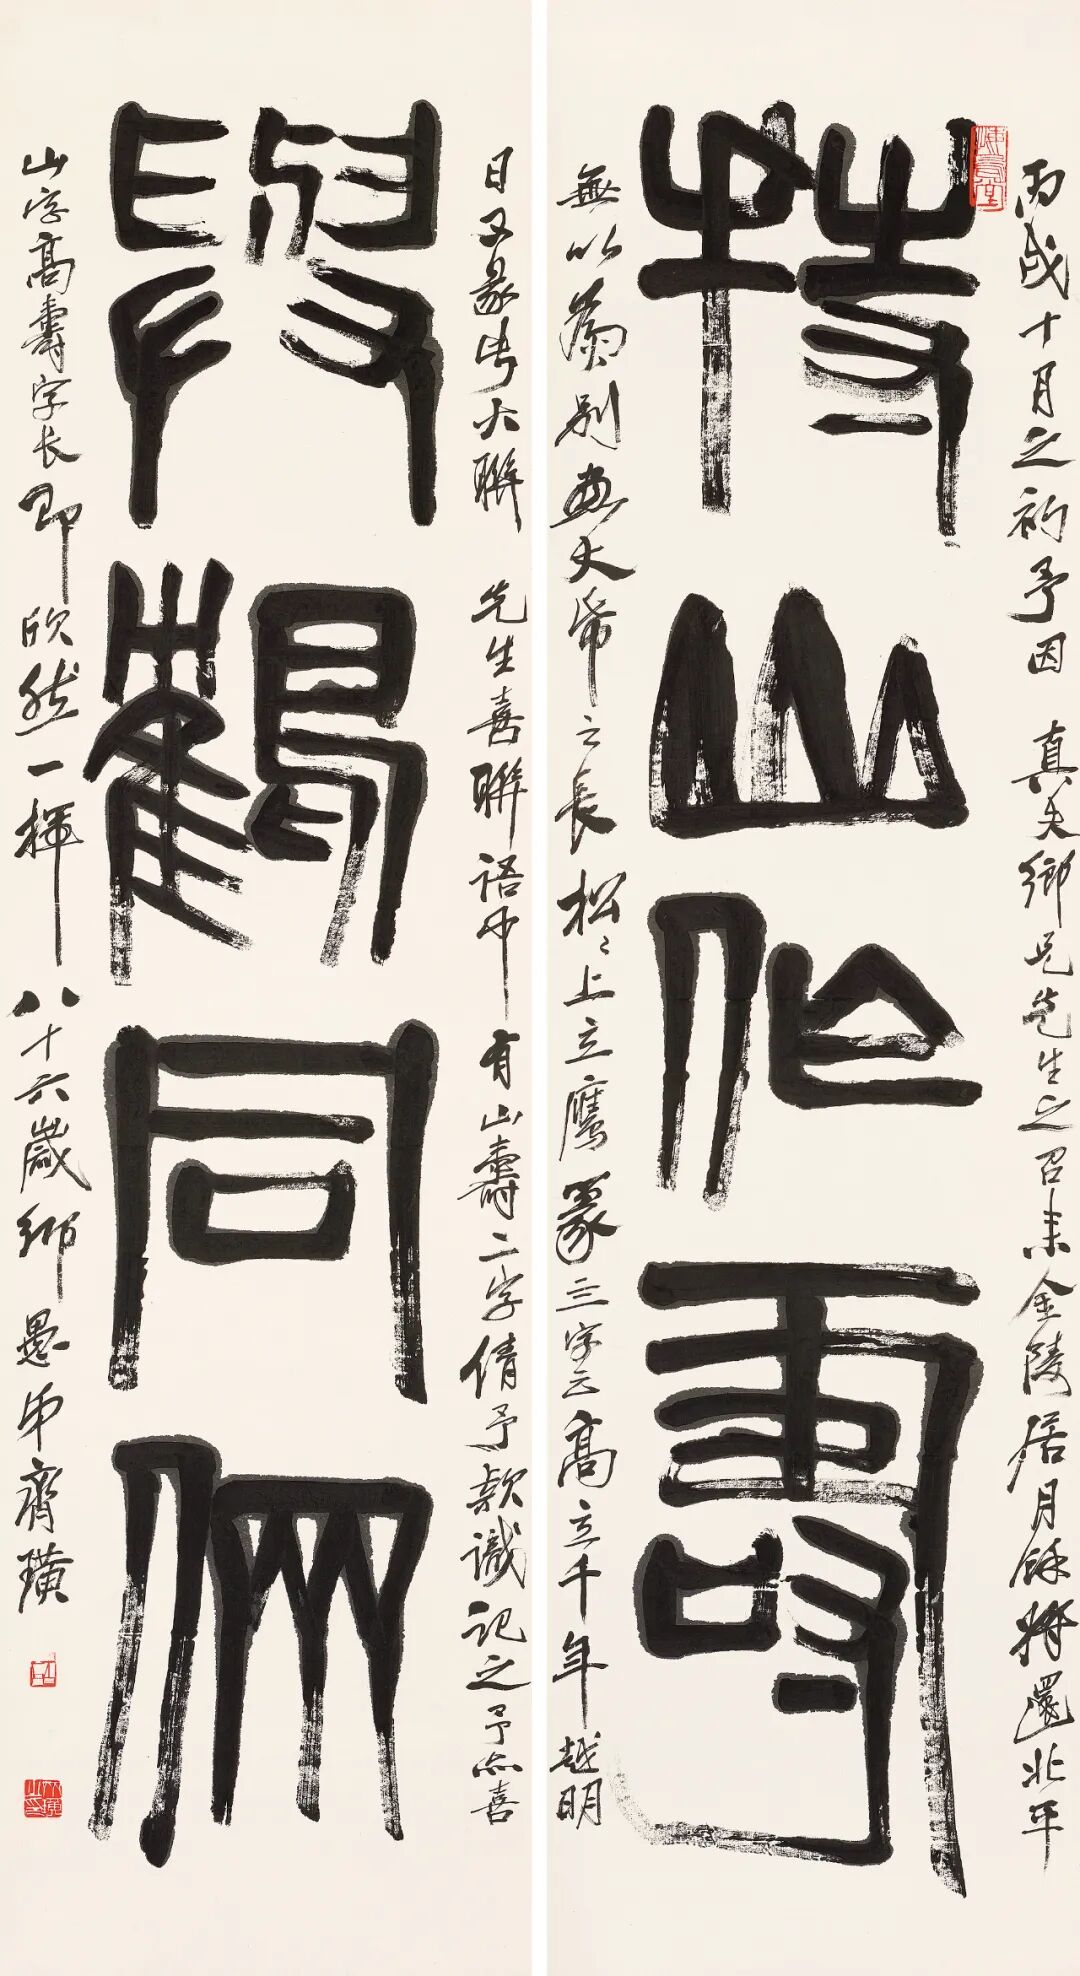 丙戌十月之初予因 真夫鄉兄先生之召来金陵居月餘將還北平
持山作壽
無以為別畫大帋之長松々上立鷹篆三字云高立千年越明
日又篆此大聯 先生喜聯語中有山壽二字倩予款識記之予亦喜
與鶴同儕
山字高壽字长即欣然一揮八十六歲鄉愚弟齊璜